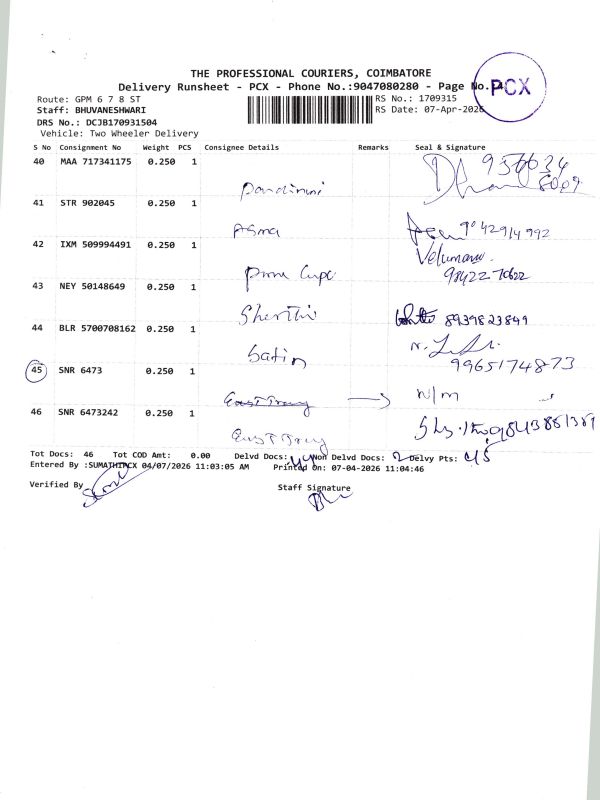 THE PROFESSIONAL COURIERS, COIMBATORE
Delivery Runsheet - PCX - Phone No.:9047080280 - Page No.
PCX
Route: GPM 6 7 8 ST
RS No.: 1709315
Staff: BHUVANESHWARI
RS Date: 07-Apr-2026
DRS No.: DCJB170931504
Vehicle: Two Wheeler Delivery
S No Consignment No Weight PCS Consignee Details Remarks Seal & Signature
40 MAA 717341175 0.250 1
41 STR 902045 0.250 1
Asma
42 IXM 509994491 0.250 1
Velumani.
98422 70622
43 NEY 50148649 0.250 1
8939823849
44 BLR 5700708162 0.250 1
9965174873
45 SNR 6473 0.250 1
East N/M
46 SNR 6473242 0.250 1
East
Tot Docs: 46 Tot COD Amt: 0.00 Delvd Docs: 44 Non Delvd Docs: 2 Delvy Pts: 45
Entered By :SUMATHIPCX 04/07/2026 11:03:05 AM Printed On: 07-04-2026 11:04:46
Verified By
Staff Signature